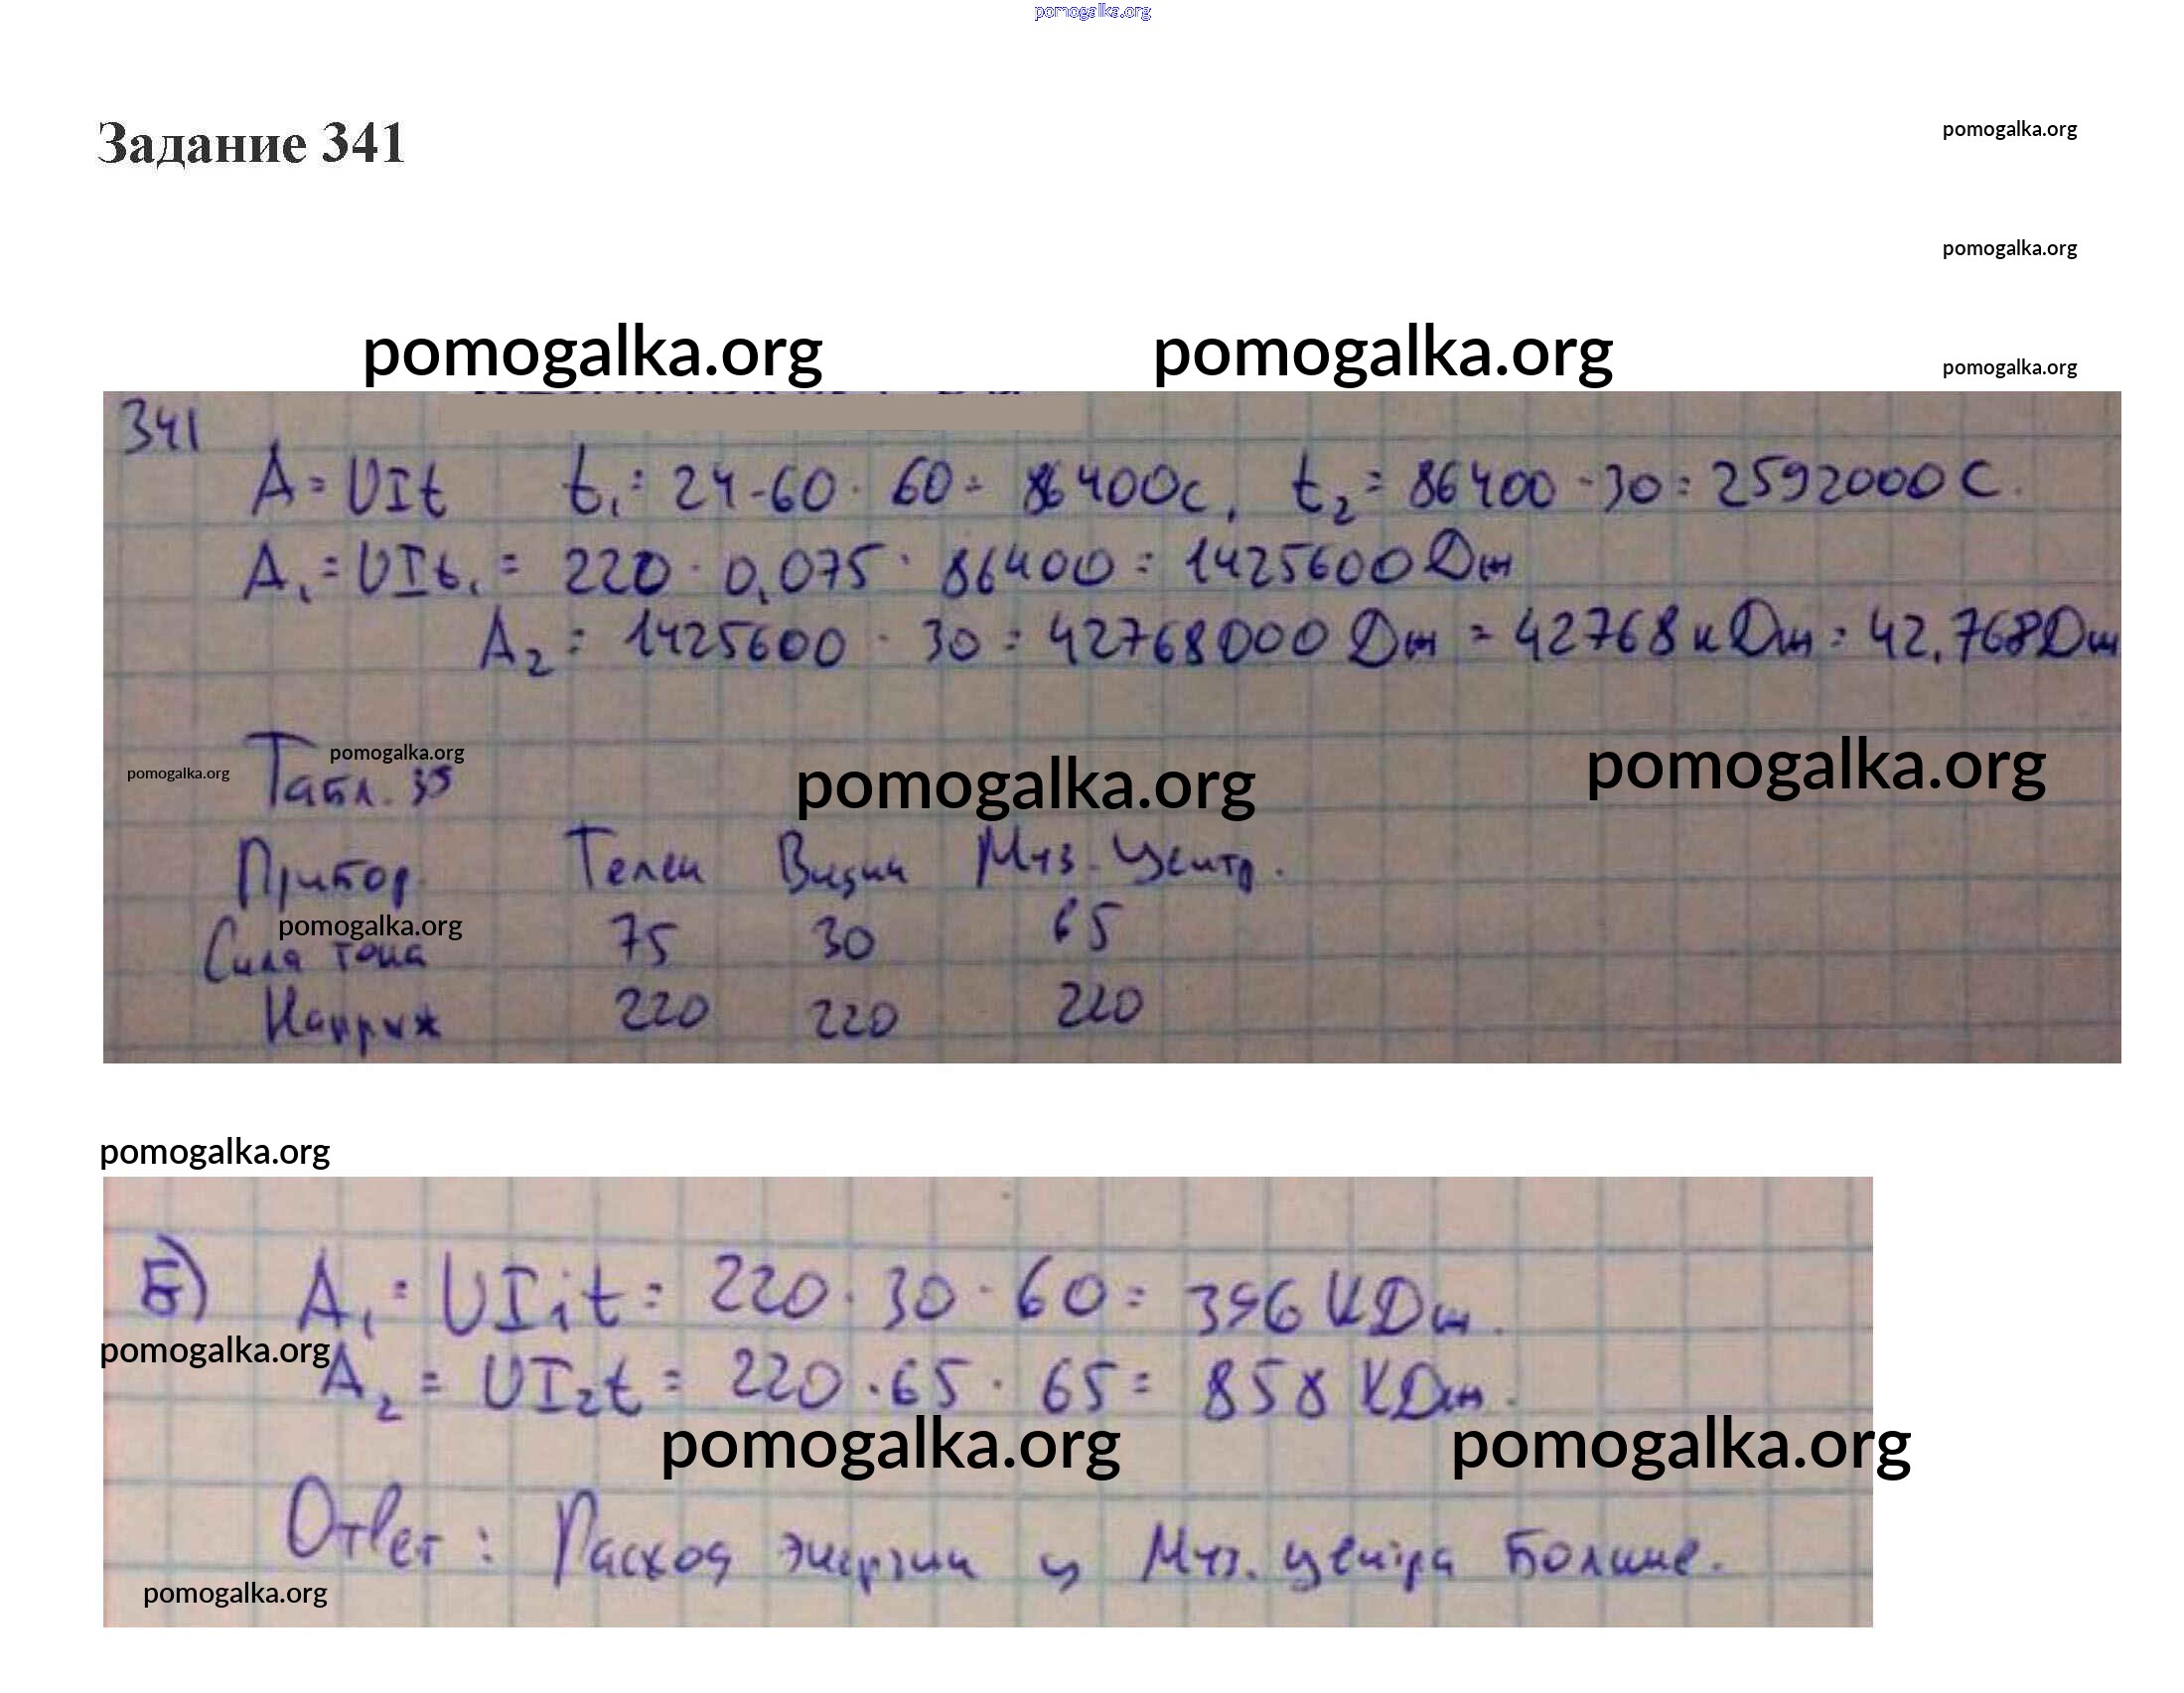 pomogalka.org
Задание 341
pomogalka.org
pomogalka.org
pomogalka.org pomogalka.org pomogalka.org
341
A = UIt t₁ = 24 · 60 · 60 = 86400 с, t₂ = 86400 · 30 = 2592000 С.
A₁ = UIt₁ = 220 · 0,075 · 86400 = 1425600 Дж
A₂ = 1425600 · 30 = 42768000 Дж = 42768 кДж = 42,768 Дж
pomogalka.org pomogalka.org
pomogalka.org pomogalka.org
pomogalka.org
Табл. 35
Прибор Телеи Видик Муз. Центр.
pomogalka.org
Сила тока 75 30 65
Напряж 220 220 220
pomogalka.org
Б) A₁ = UI₁t = 220 · 30 · 60 = 396 КДж.
pomogalka.org
A₂ = UI₂t = 220 · 65 · 65 = 858 КДж.
pomogalka.org pomogalka.org
Ответ: Расход энергии у Муз. центра Больше.
pomogalka.org